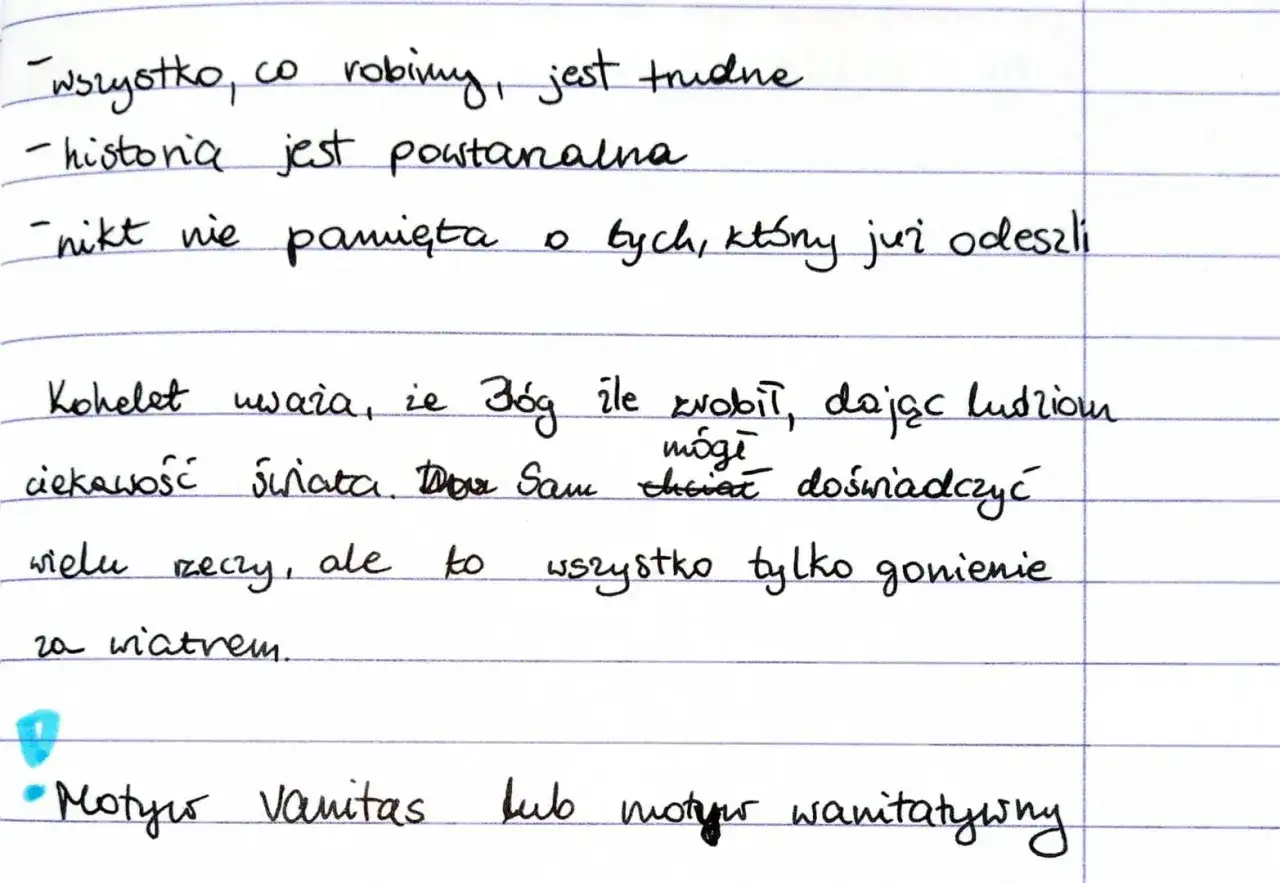 - wszystko, co robimy, jest trudne
- historia jest powtarzalna
- nikt nie pamięta o tych, który już odeszli
Kohelet uważa, że Bóg źle zrobił, dając ludziom
ciekawość świata. Sam mógł doświadczyć
wielu rzeczy, ale to wszystko tylko gonienie
za wiatrem.
! Motyw vanitas lub motyw wanitatywny